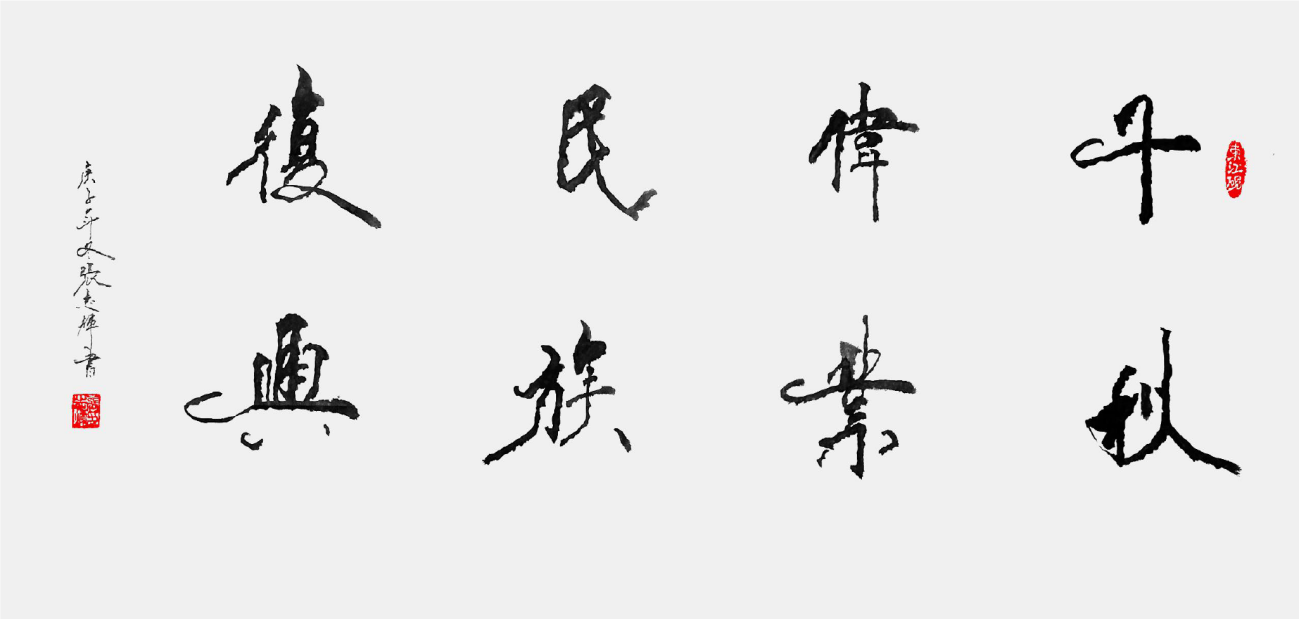 千秋
偉業
民族
復興
庚子年冬張志輝書